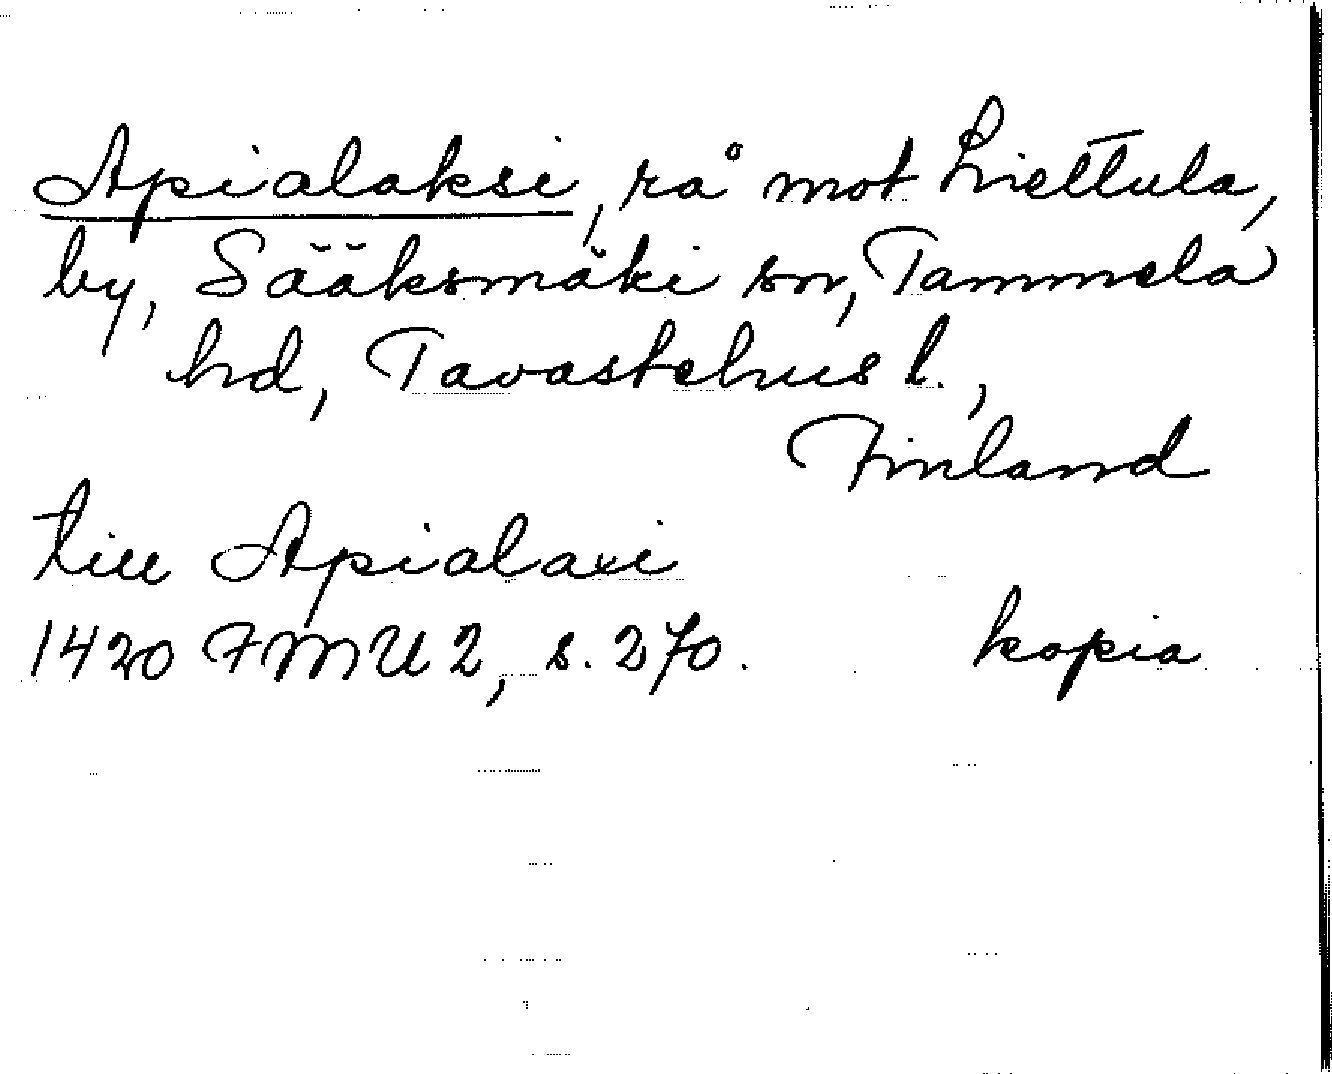 Apialaksi, rå mot Liettula,
by, Sääksmäki sn, Tammela
hd, Tavastehus l.,
Finland
till Apialaxi
1420 FMU 2, s. 270.
kopia